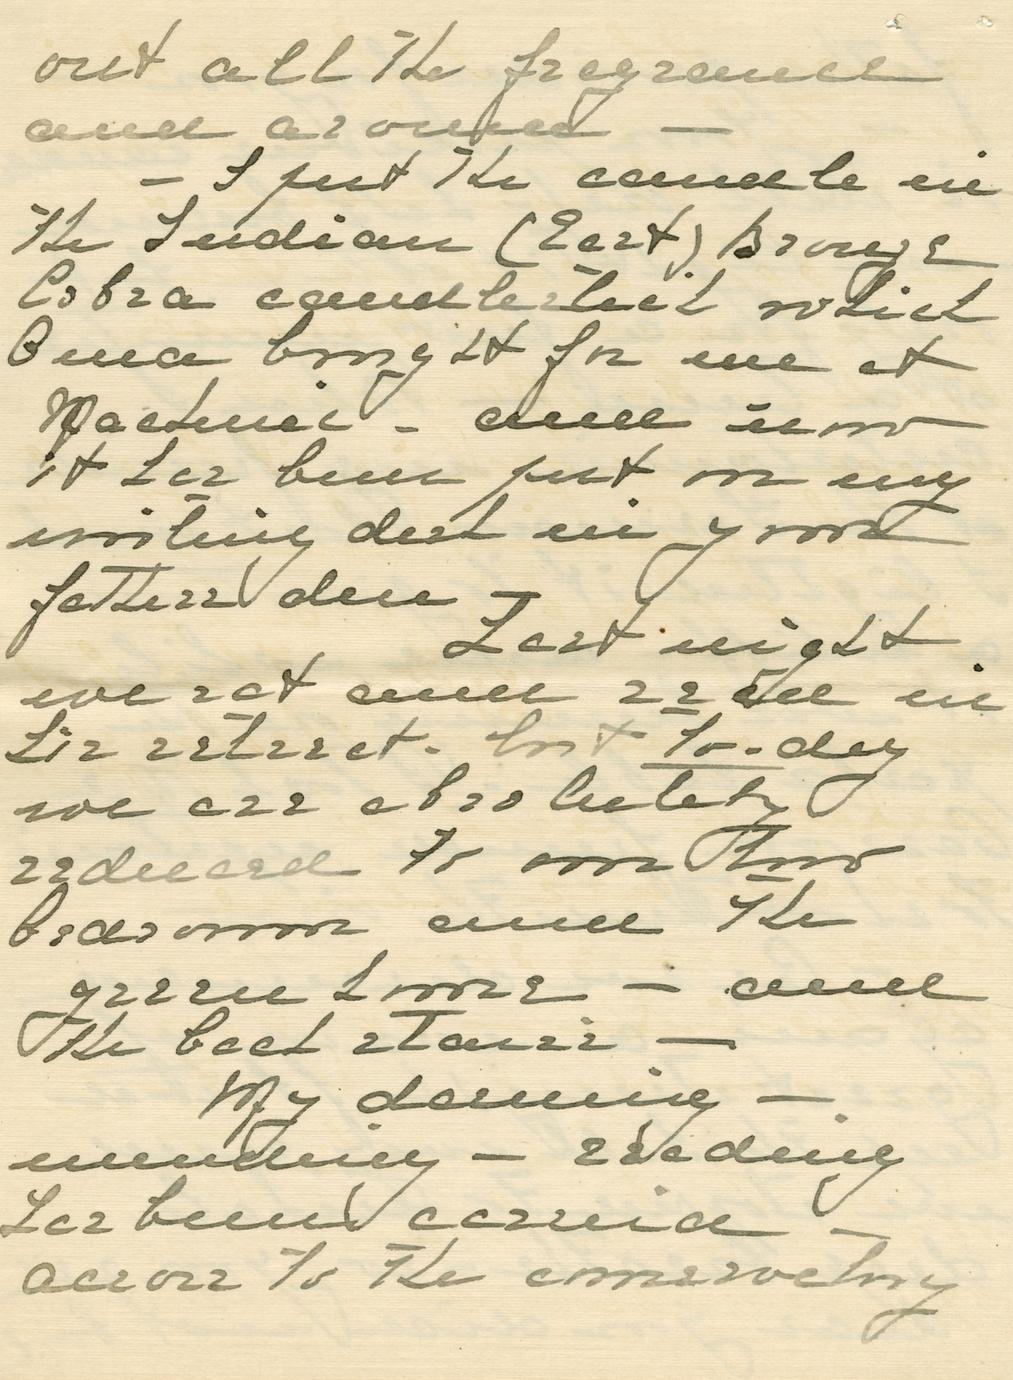 out all the fragrance
and around —
— I put the candle in
the Indian (East) Bronze
Cobra candlestick which
Bena bought for me at
— and now
it has been put on my
writing desk in your
fathers den —
Last night
we sat and read in
his retreat. but to-day
we are absolutely
reduced to our two
bedrooms and the
green house — and
the back stairs —
My darning —
mending — reading
has been carried —
across to the conservatory